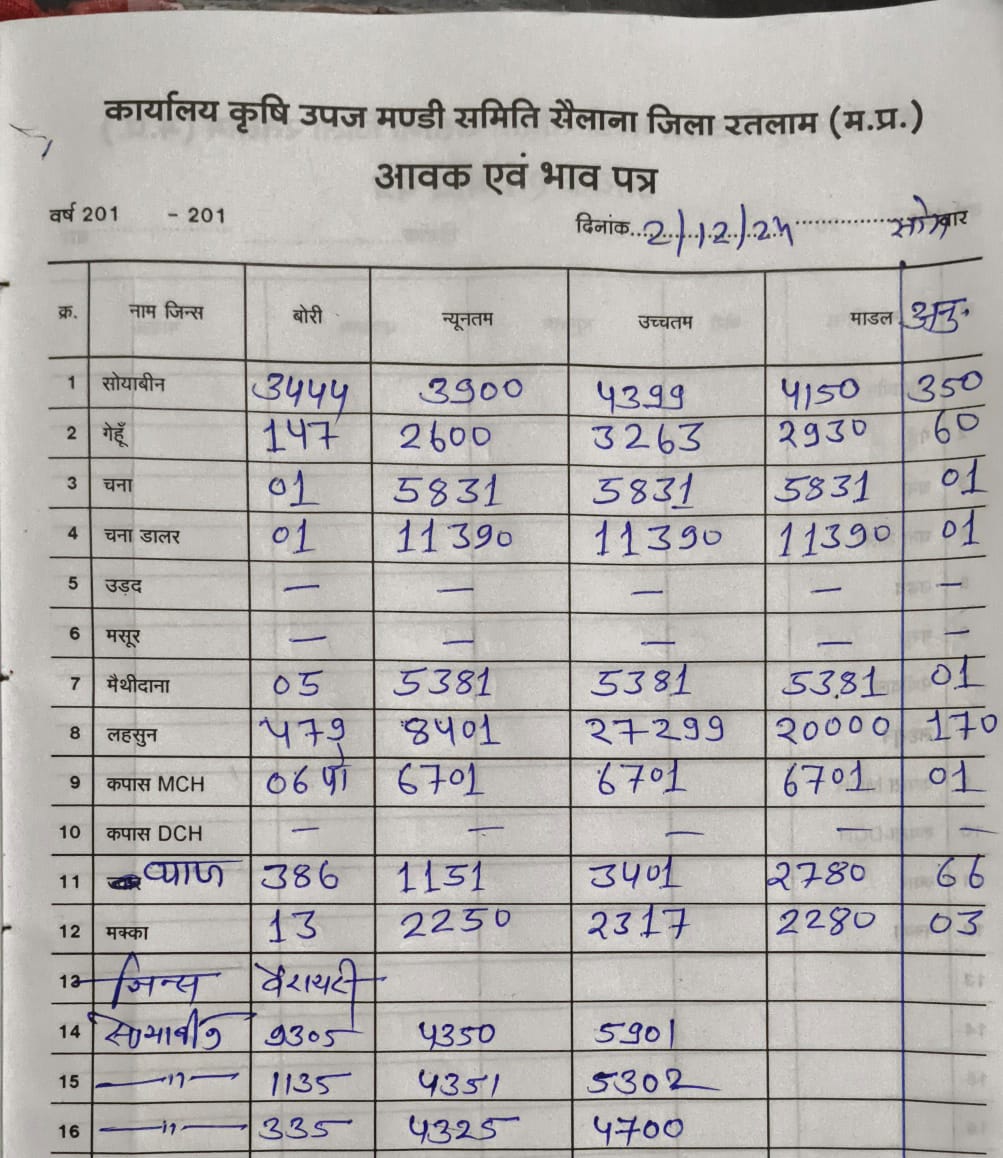 कार्यालय कृषि उपज मण्डी समिति सैलाना जिला रतलाम (म.प्र.)
आवक एवं भाव पत्र
वर्ष 201 - 201 दिनांक 2/12/24 सोमवार
क्र. नाम जिन्स बोरी न्यूनतम उच्चतम माडल अनु.
1 सोयाबीन 3444 3900 4399 4150 350
2 गेहूँ 147 2600 3263 2930 60
3 चना 01 5831 5831 5831 01
4 चना डालर 01 11390 11390 11390 01
5 उड़द — — — — —
6 मसूर — — — — —
7 मैथीदाना 05 5381 5381 5381 01
8 लहसुन 479 8401 27299 20000 170
9 कपास MCH 06 पो 6701 6701 6701 01
10 कपास DCH — — — — —
11 प्याज 386 1151 3401 2780 66
12 मक्का 13 2250 2317 2280 03
13 जिन्स वेरायटी
14 सोयाबीन 9305 4350 5901
15 —"— 1135 4351 5302
16 —"— 335 4325 4700